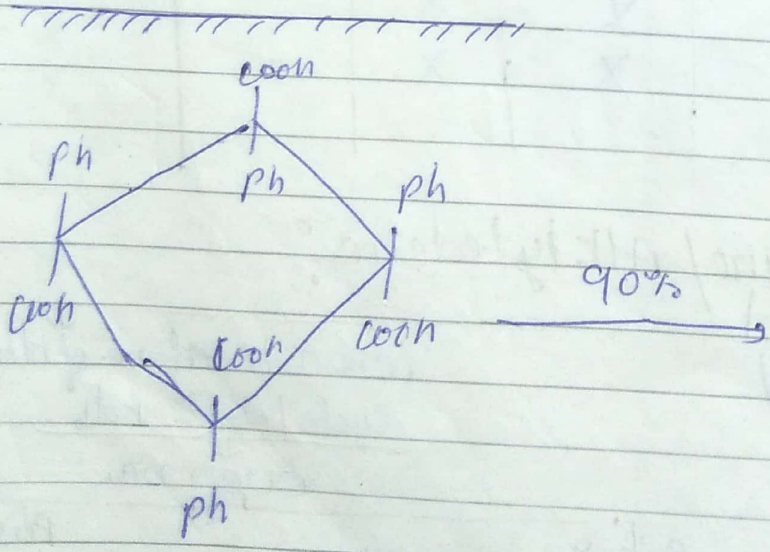 COOH
Ph
Ph
Ph
COOH
COOH
COOH
Ph
90%